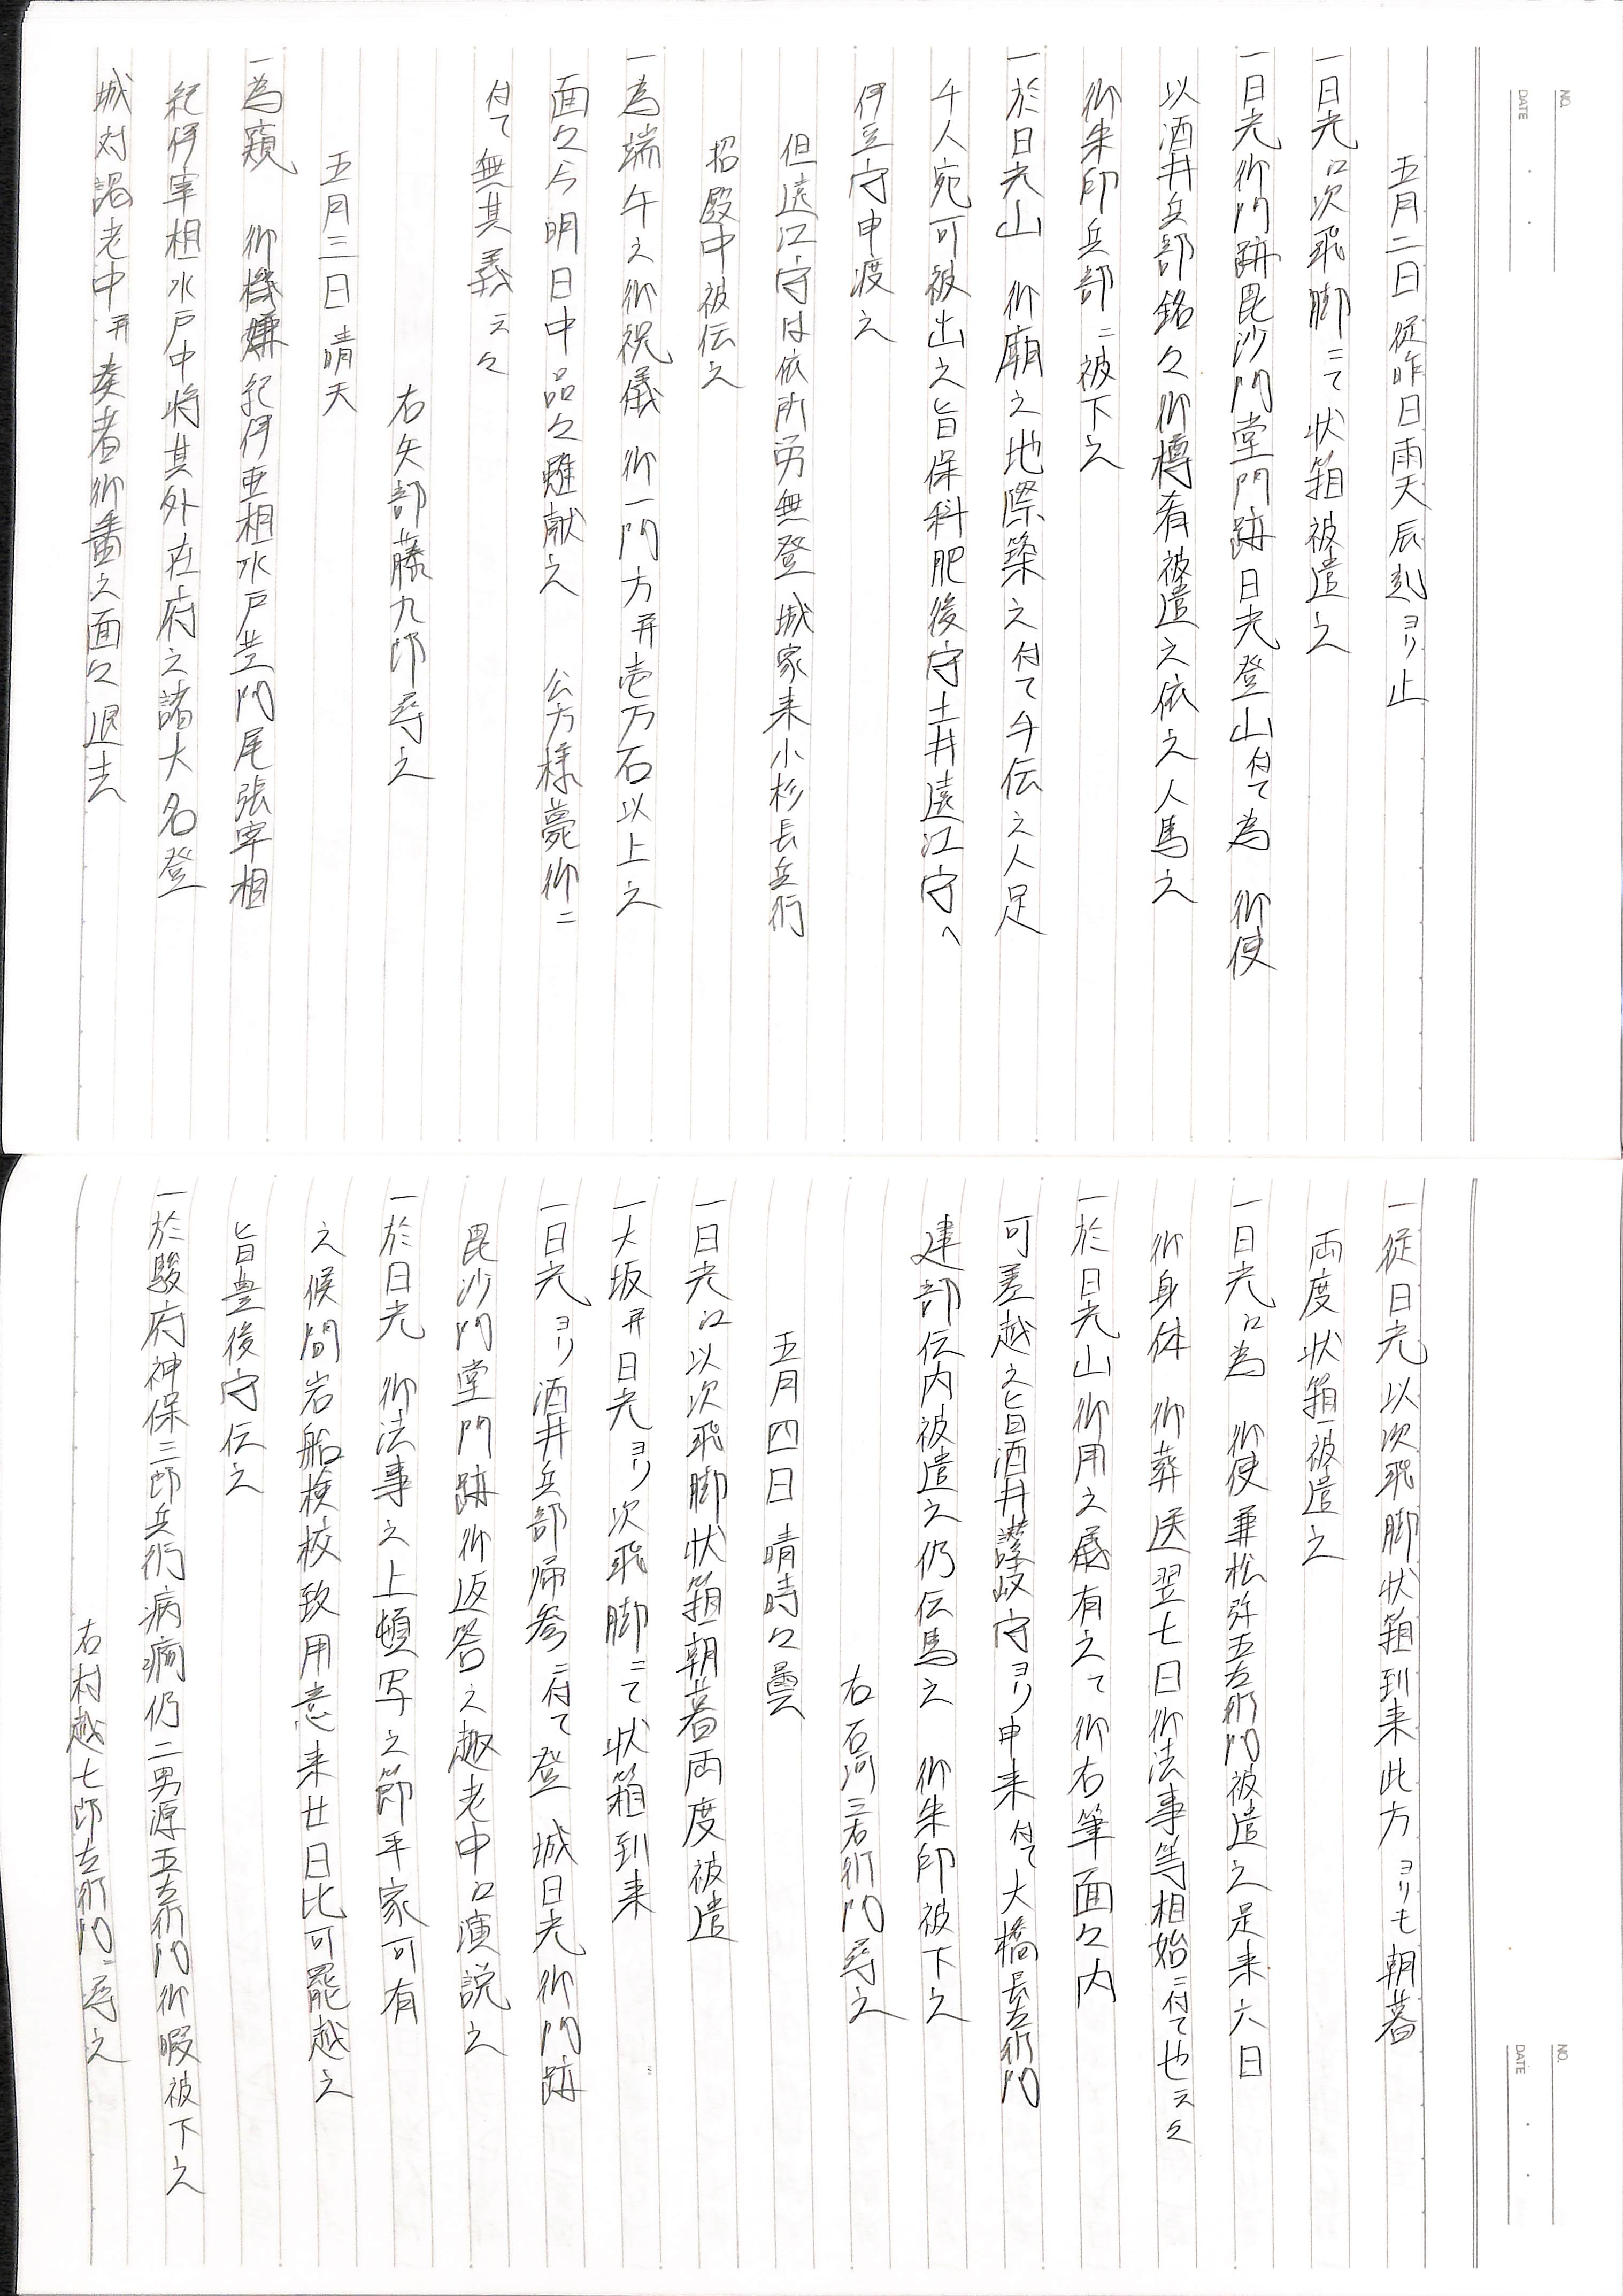 NO.
DATE
五月二日 従昨日雨天辰刻ヨリ止
一日光江次飛脚ニて状箱被遣之
一日光御門跡毘沙門堂門跡日光登山付て為 御使
以酒井兵部銘々御樽肴被遣之依之人馬之
御朱印兵部ニ被下之
一於日光山 御廟之地際築之付て手伝之人足
千人宛可被出之旨保科肥後守土井遠江守へ
伊豆守申渡之
但遠江守は依所労無登 城家来小杉長兵衛
招殿中被伝之
一為端午之御祝儀 御一門方并壱万石以上之
面々今明日中品々雖献之 公方様薨御ニ
付て無其義云々
右矢部藤九郎尋之
五月三日 晴天
一為窺 御機嫌紀伊亜相水戸黄門尾張宰相
紀伊宰相水戸中将其外在府之諸大名登
城対謁老中并奏者御番之面々退去
NO.
DATE
一従日光以次飛脚状箱到来此方ヨリモ朝暮
両度状箱被遣之
一日光江為 御使兼松弥五左衛門被遣之是来六日
御身体 御葬送翌七日御法事等相始ニ付て也云々
一於日光山御用之儀有之て御右筆面々内
可差越之旨酒井讃岐守ヨリ申来付て大橋長左衛門
建部伝内被遣之仍伝馬之 御朱印被下之
右石河三右衛門尋之
五月四日 晴時々曇
一日光江以次飛脚状箱朝暮両度被遣
一大坂并日光ヨリ次飛脚ニて状箱到来
一日光ヨリ酒井兵部帰参ニ付て登 城日光御門跡
毘沙門堂門跡御返答之趣老中江演説之
一於日光 御法事之上頓写之節平家可有
之候間岩船検校致用意来廿日比可罷越之
旨豊後守伝之
一於駿府神保三郎兵衛病痾仍二男源五左衛門御暇被下之
右村越七郎左衛門尋之